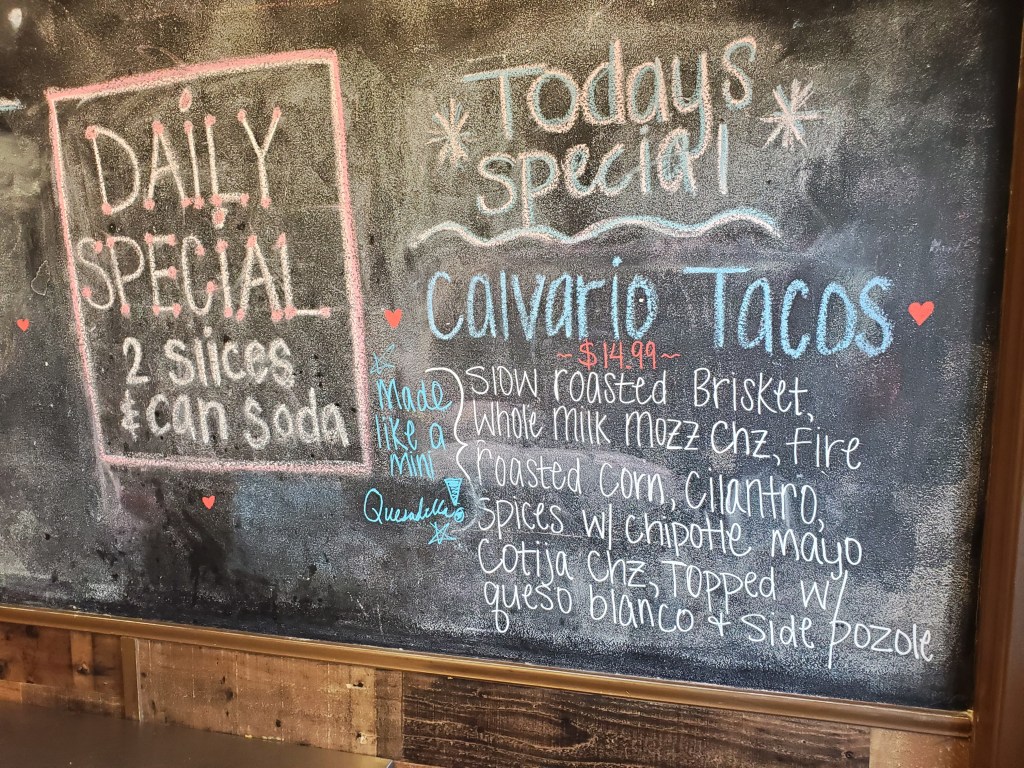 DAiLY
SPECiAL
2 slices
& can soda
Todays
special
Calvario Tacos
~$14.99~
Made
like a
mini
Quesadilla!
Slow roasted Brisket,
Whole Milk Mozz chz, Fire
roasted corn, Cilantro,
Spices w/ chipotle mayo
Cotija Chz, Topped w/
queso blanco & side pozole